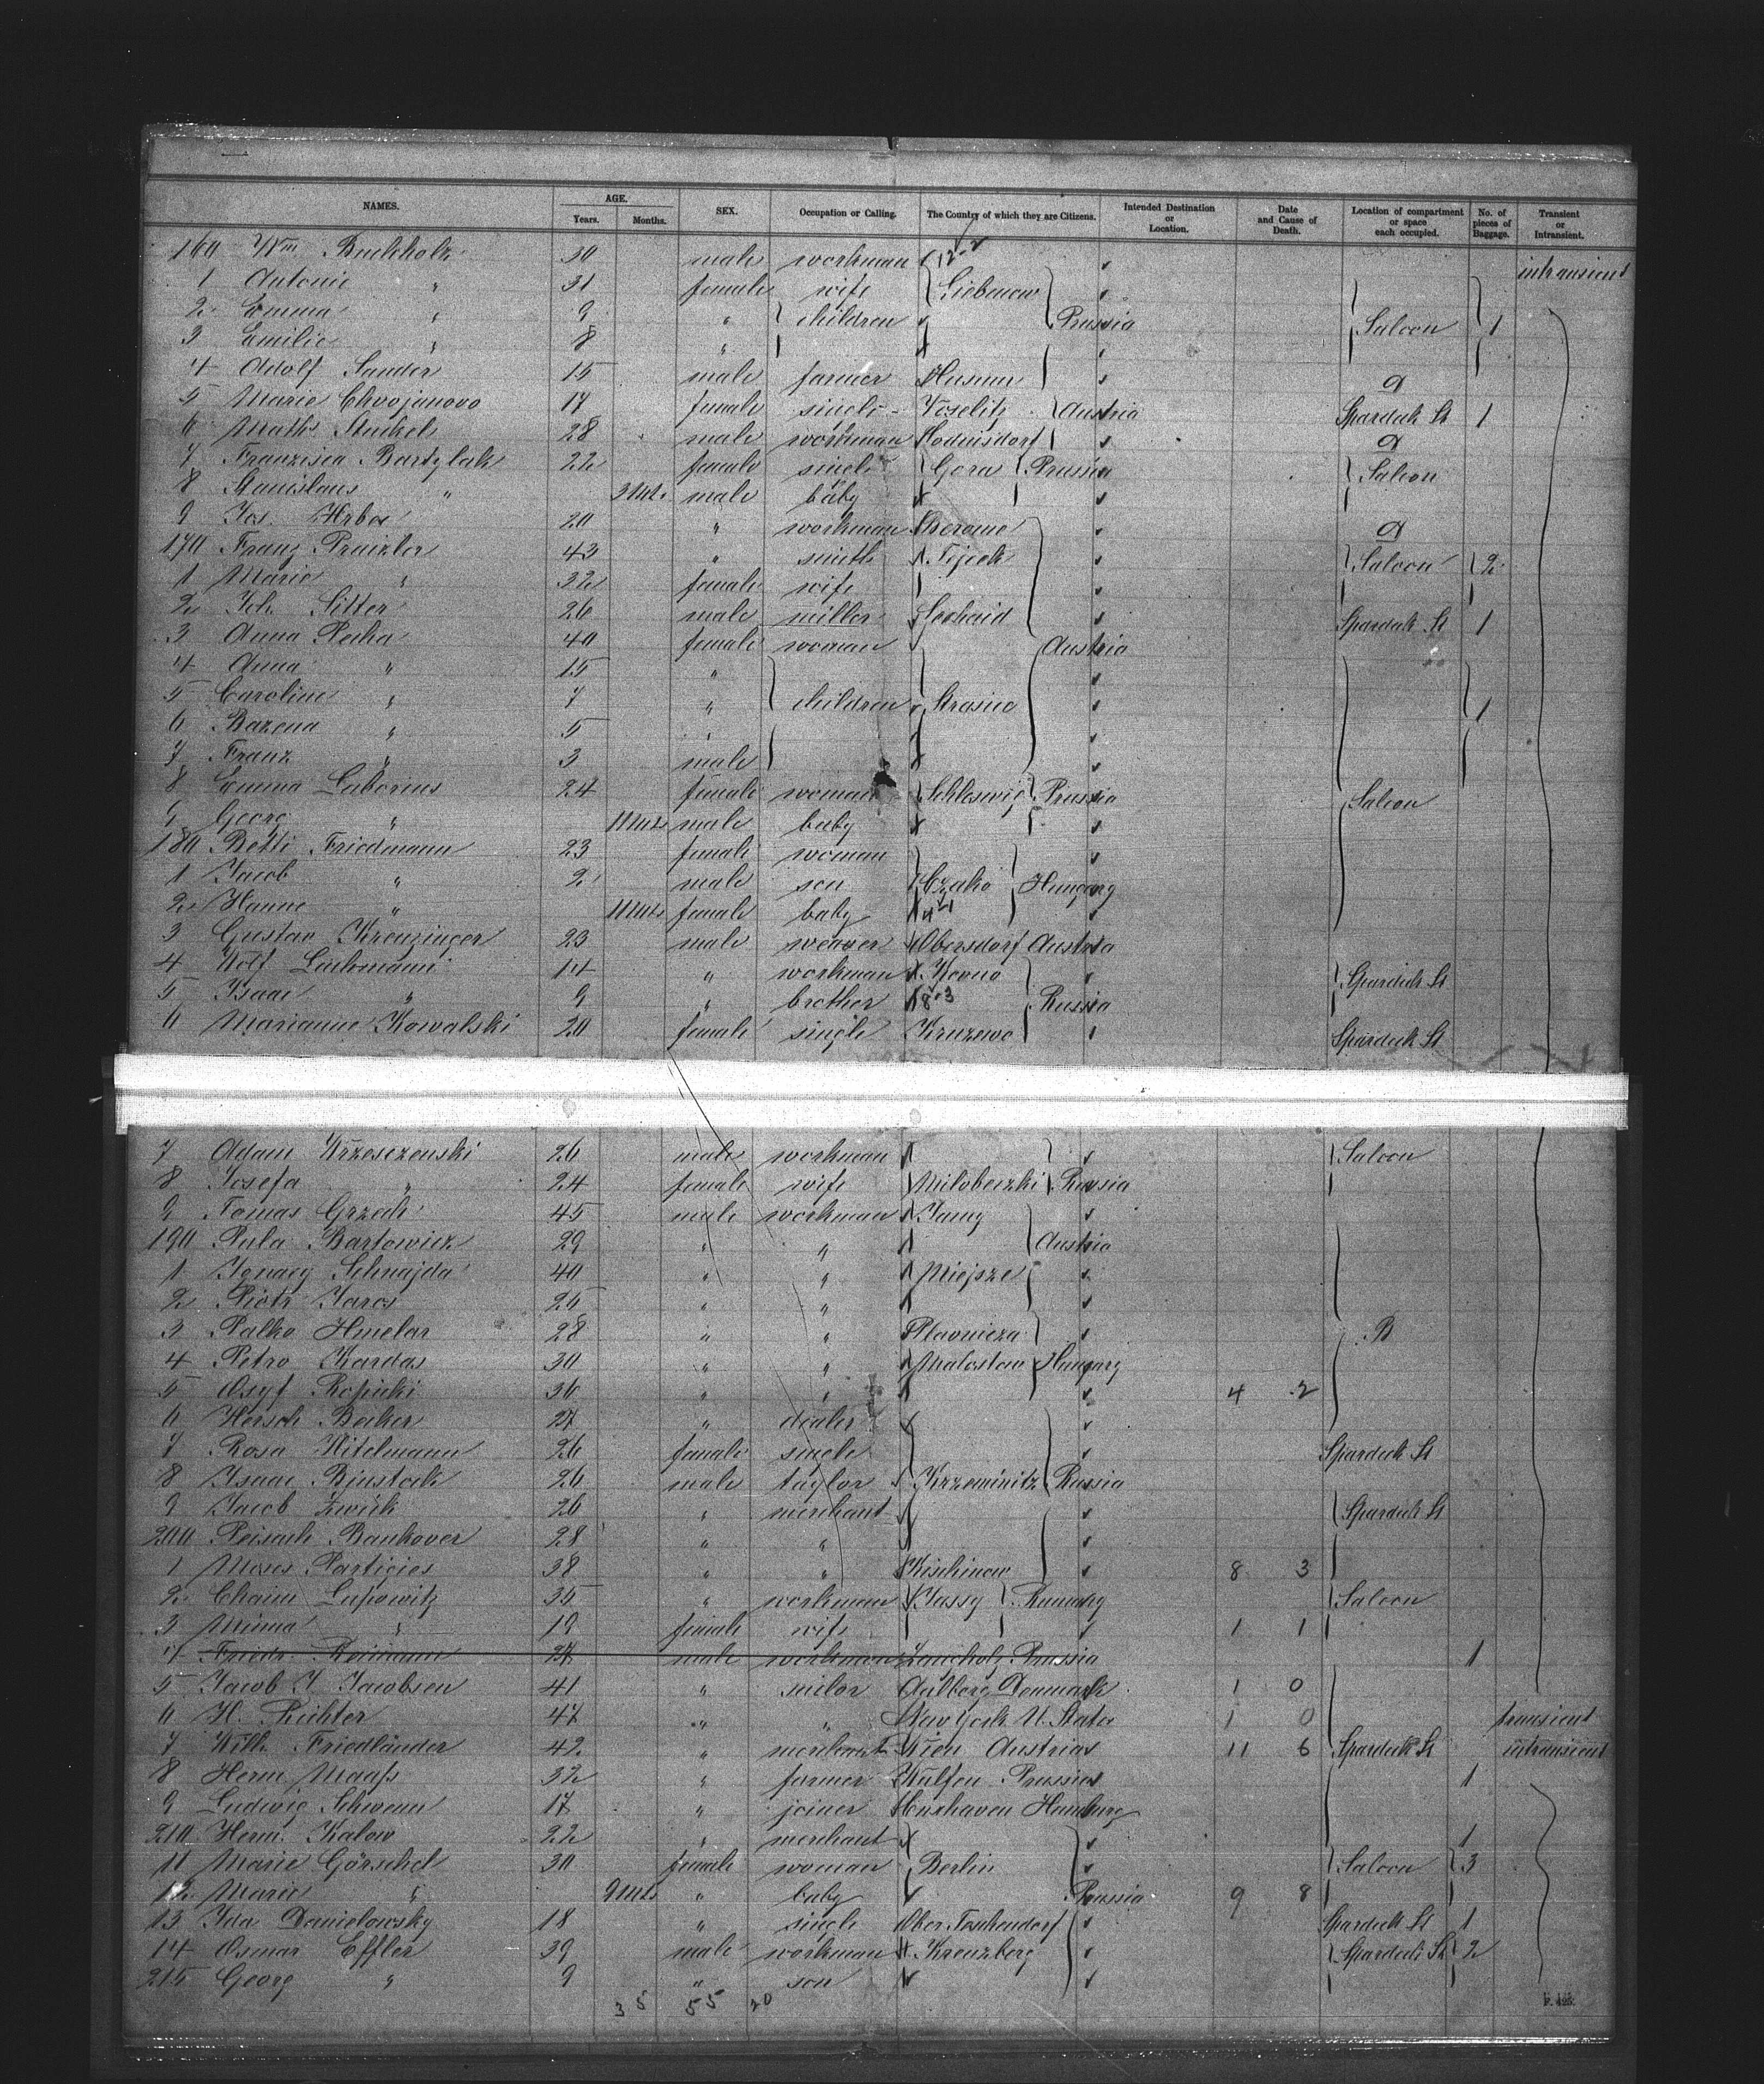 NAMES. AGE. Years. Months. SEX. Occupation or Calling. The Country of which they are Citizens. Intended Destination or Location. Date and Cause of Death. Location of compartment or space each occupied. No. of pieces of Baggage. Transient or Intransient.
160 Wm Buchholz 30 male workman 12-2 intransient
1 Antonie " 31 female wife Liebenow
2 Emma " 9 " children Prussia Saloon 1
3 Emilie " 8 "
4 Adolf Sander 15 male farmer Husum a
5 Marie Chvojanovo 17 female single Austria Spardeck St 1
6 Math. 28 male workman a
7 Franzisca Bartylak 22 female single Gora Prussia Saloon
8 Stanislaus " 3 Mts male baby
9 Jos. Hrba 20 " workman a
170 Franz 43 " smith Saloon 2
1 Marie " 32 female wife
2 Joh. Sitter 26 male miller Spardeck St 1
3 Anna Pecha 40 female woman Austria
4 Anna " 15 "
5 Caroline " 7 " children 1
6 Bazena " 5 "
7 Franz " 3 male
8 Emma Laborius 24 female woman Schleswig Prussia Saloon
9 Georg " 11 Mts male baby
180 Betti Friedmann 23 female woman
1 Jacob " 2 male son Czako Hungary
2 Hanne " 11 Mts female baby 4-1
3 Gustav Kreuzinger 23 male weaver Obersdorf Austria
4 Wolf 14 " workman Kovno Spardeck St
5 Isaac " 9 " brother 8-3 Russia
6 Marianne Kowalski 20 female single Kruzewo Spardeck St
7 Adam Wrzesczenski 26 male workman Saloon
8 Josefa " 24 female wife Milobeczki Russia
9 Tomas Grzech 45 male workman
190 Pula Bartowicz 29 " " Austria
1 Ignacy Schnajda 40 " " Miejsze
2 Piotr Jaros 25 " "
3 Palko Hmelar 28 " " Plavnicza B
4 Petro Kardas 30 " " Malostow Hungary
5 Osyf Ropicki 36 " " 4 2
6 Hersch Becker 27 " dealer
7 Rosa Hitelmann 26 female single Spardeck St
8 Isaac 26 male taylor Krzeminitz Russia
9 Jacob Zwick 26 " merchant Spardeck St
200 Peisach Bankover 28 " "
1 Moses Particies 38 " " Kischinew 8 3
2 Chaim Lupowitz 35 " workman Jassy Saloon
3 Minna " 19 female wife 1 1
4 Friedr. Reimann 27 male workman Langholz Prussia 1
5 Jacob J. Jacobsen 41 " sailor Aalborg Denmark 1 0
6 H. Richter 47 " " New York U. States 1 0 transient
7 Wilh. Friedländer 42 " merchant Wien Austria 11 6 Spardeck St intransient
8 Herm. Maaß 32 " farmer Prussia 1
9 Ludwig Schwenn 17 " joiner Cuxhaven Hamburg
210 Herm. Kalow 22 " merchant 1
11 Marie Görschel 30 female woman Berlin Saloon 3
12 Marie " 9 Mts " baby Prussia 9 8
13 Ida Danielowsky 18 " single Ober Toschendorf Spardeck St 1
14 Osmar Effler 39 male workman Kreuzberg Spardeck St 2
215 Georg " 9 " son
35 55 20